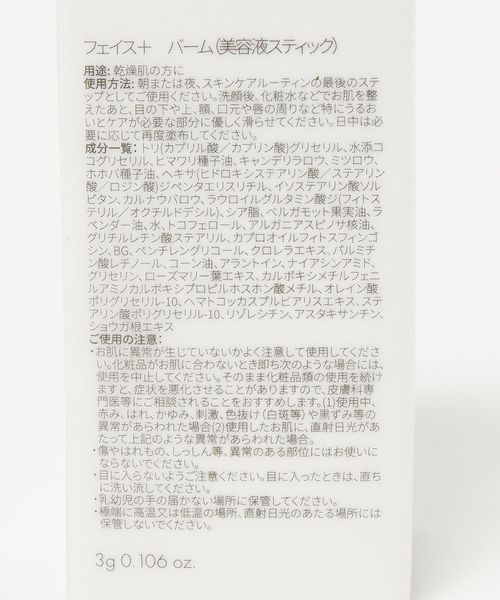 フェイス＋　バーム(美容液スティック)
用途: 乾燥肌の方に
使用方法: 朝または夜、スキンケアルーティンの最後のステ
ップとしてご使用ください。洗顔後、化粧水などでお肌を整
えたあと、目の下や上、額、口元や唇の周りなど特にうるお
いとケアが必要な部分に優しく滑らせてください。日中は必
要に応じて再度塗布してください。
成分一覧: トリ(カプリル酸／カプリン酸)グリセリル、水添コ
コグリセリル、ヒマワリ種子油、キャンデリラロウ、ミツロウ、
ホホバ種子油、ヘキサ(ヒドロキシステアリン酸／ステアリン
酸／ロジン酸)ジペンタエリスリチル、イソステアリン酸ソル
ビタン、カルナウバロウ、ラウロイルグルタミン酸ジ(フィトス
テリル／オクチルドデシル)、シア脂、ベルガモット果実油、ラ
ベンダー油、水、トコフェロール、アルガニアスピノサ核油、
グリチルレチン酸ステアリル、カプロオイルフィトスフィンゴ
シン、BG、ペンチレングリコール、クロレラエキス、パルミチ
ン酸レチノール、コーン油、アラントイン、ナイアシンアミド、
グリセリン、ローズマリー葉エキス、カルボキシメチルフェニ
ルアミノカルボキシプロピルホスホン酸メチル、オレイン酸
ポリグリセリル-10、ヘマトコッカスプルビアリスエキス、ステ
アリン酸ポリグリセリル-10、リゾレシチン、アスタキサンチン、
ショウガ根エキス
ご使用の注意:
・お肌に異常が生じていないかよく注意して使用してくださ
い。化粧品がお肌に合わないとき即ち次のような場合には、
使用を中止してください。そのまま化粧品類の使用を続け
ますと、症状を悪化させることがありますので、皮膚科専
門医等にご相談されることをおすすめします。(1)使用中、
赤み、はれ、かゆみ、刺激、色抜け(白斑等)や黒ずみ等の
異常があらわれた場合(2)使用したお肌に、直射日光があ
たって上記のような異常があらわれた場合。
・傷やはれもの、しっしん等、異常のある部位にはお使いに
ならないでください。
・目に入らないようご注意ください。目に入ったときは、直ち
に洗い流してください。
・乳幼児の手の届かない場所に保管してください。
・極端に高温又は低温の場所、直射日光のあたる場所には
保管しないでください。
3g 0.106 oz.